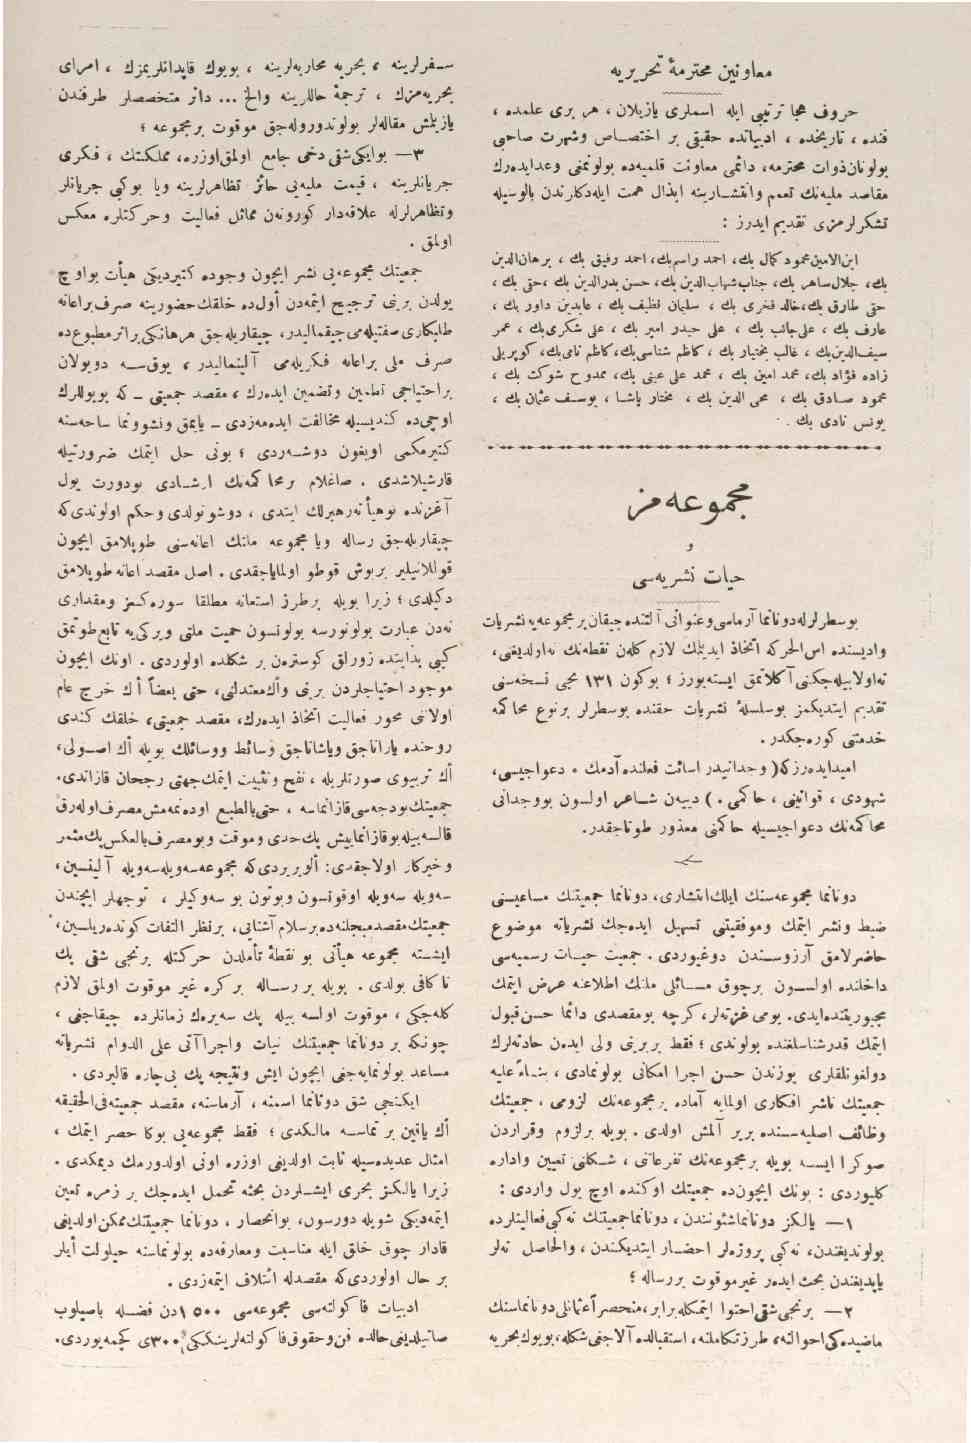 معاونين محترمهٔ تحريريه
حروف هجا ترتيبى ايله اسملرى يازيلان ، هر برى علمده ،
فنده ، تاريخده ، ادبياتده حقيقى بر اختصاص وشهرت صاحبى
بولونان ذوات محترمه، دائمى معاونت قلميه‌ده بولونمغى وعدايده‌رك
مقاصد مليه‌نك تعمم وانتشارينه ابذال همت ايله‌دكلرندن بالوسيله
تشكرلرمزى تقديم ايدرز :
ابن‌الامين محمود كمال بك، احمد راسم بك، احمد رفيق بك ، برهان‌الدين
بك، جلال ساهر بك، جناب شهاب‌الدين بك، حسن بدرالدين بك ،حقى بك ،
حقى طارق بك،خالد فخرى بك ، سليمان نظيف بك ، عابدين داور بك ،
عارف بك ، على جانب بك ، على حيدر امير بك ، على شكرى بك ، عمر
سيف‌الدين بك ، غالب بختيار بك ، كاظم شناسى بك،كاظم نامى بك، كوپريلى
زاده فؤاد بك، محمد امين بك ، محمد على عينى بك، ممدوح شوكت بك ،
محمود صادق بك ، محى الدين بك ، مختار پاشا ، يوسف عثمان بك ،
يونس نادى بك .
مجموعه‌مز
و
حيات نشريه‌سى
بوسطرلرله دونانما آرماسى وعنوانى آلتنده چيقان بر مجموعه‌يه نشريات
واديسنده اس‌الحركه اتخاذ ايديلمك لازم كلن نقطه‌نك نه‌اولديغى،
نه‌اولابيله‌جكنى آكلاتمق ايسته‌يورز ؛ بوكون ١٣١ نجى نسخه‌سنى
تقديم ايتديكمز بوسلسلهٔ نشريات حقنده بوسطرلر برنوع محاكمه
خدمتى كوره‌جكدر.
اميدايده‌رزكه( وجدانيدر اسائت فعلنده آدمك ٠ دعواجيسى،
شهودى ، قوانينى ، حاكمى . ) ديين شاعر اولسون بووجدانى
محاكمه‌نك دعواجيسيله حاكمنى معذور طوتاجقدر.
دونانما مجموعه‌سنك ايلك انتشارى، دونانما جمعيتنك مساعيسنى
ضبط ونشر ايتمك وموفقيتنى تسهيل ايده‌جك نشرياته موضوع
حاضرلامق آرزوسندن دوغيوردى . جمعيت حيات رسميه‌سى
داخلنده اولسون برچوق مسائلى ملتك اطلاعنه عرض ايتمك
مجبوريتنده‌ايدى. يومى غزته‌لر، كرچه بومقصدى دائما حسن قبول
ايتمك قدرشناسلغنده بولوندى ؛ فقط بربرينى ولى ايدن حادثه‌لرك
دولغونلقلرى يوزندن حسن اجرا امكانى بولونمادى ، بناءً عليه
جمعيتك ناشر افكارى اولمايه آماده برمجموعه‌نك لزومى ، جمعيتك
وظائف اصليه‌سنده برير آلمش اولدى . بويله برلزوم وقراردن
صوكرا ايسه بويله برمجموعه‌نك تفرعاتى ، شكلنى تعيين واداره
كليوردى : بونك ايچون‌ده جمعيتك اوكنده اوچ يول واردى :
١— يالكز دونانماشئونندن، دونانما جمعيتنك نه‌كبى فعاليتلرده
بولونديغندن، نه‌كبى پروژه‌لر احضار ايتديكندن ، والحاصل نه‌لر
ياپديغندن بحث ايده‌ر غيرموقوت بررساله ؛
٢— برنجى شقى احتوا ايتمكله برابر، منحصر آعثمانلى دونانماسنك
ماضيده‌كى احوالنه، طرزتكاملنه، استقبالده آلاجغى شكله، بويوك بحريه
سفرلرينه ، بحريه محاربه‌لرينه ، بويوك قاپدانلريمزك ، امراى
بحريه‌مزك ، ترجمهٔ حاللرينه والخ ... دائر متخصصلر طرفندن
يازيلمش مقاله‌لر بولوندوروله‌جق موقوت برمجموعه ؛
٣— بوايكى شقى دخى جامع اولمق اوزره، مملكتك ، فكرى
جريانلرينه ، قيمت مليه‌يى حائز تظاهرلرينه ويا بوكبى جريانلر
وتظاهرلرله علاقه‌دار كورونن مماثل فعاليت وحركتلره معكس
اولمق .
جمعيتك مجموعه‌يى نشر ايچون وجوده كتيرديكى هيأت بواوچ
يولدن برينى ترجيح ايتمه‌دن اول‌ده خلقك حضورينه صرف براعانه
طلبكارى صفتيله‌مى چيقمليدر، چيقاريله‌جق هرهانكى براثر مطبوع‌ده
صرف ملى براعانه فكريله‌مى آلينماليدر ، يوقسه دويولان
براحتياجى تطمين وتضمين ايده‌رك ، مقصد جمعيتى ـ كه بويوللرك
اوچى‌ده كنديسيله مخالفت ايده‌مه‌زدى ـ يايمق ونشوونما ساحه‌سنه
كتيرمكمى اويغون دوشه‌ردى ؛ بونى حل ايتمك ضرورتيله
قارشيلاشدى . صاغلام برمحاكمه‌نك ارشادى بودورت يول
آغزنده بوهيأته رهبرلك ايتدى ، دوشونولدى وحكم اولوندى‌كه
چيقاريله‌جق رساله ويا مجموعه ملتك اعانه‌سنى طوپلامق ايچون
قوللانيلير بربوش قوطو اولماياجقدى . اصل مقصد اعانه طوپلامق
دكيلدى ؛ زيرا بويله برطرز استعانه مطلقا سوره‌كسز ومقدارى
نه‌دن عبارت بولونورسه بولونسون حميت ملتى ويركى‌يه تابع طوتمق
كبى بدايتده زورلق كوسترن بر شكلده اولوردى . اونك ايچون
موجود احتياجلردن برينى واك معتدلنى، حتى بعضاً اك خرج عام
اولانى محور فعاليت اتخاذ ايده‌رك، مقصد جمعيتى، خلقك كندى
روحنده ياراتاجق وياشاتاجق وسائط ووسائلك بويله اك اصولى،
اك تربيوى صورتلريله ، نفح وتثبيت ايتمك جهتى رجحان قازاندى.
جمعيتك بودجه‌سى قازانماسه ، حتى بالطبع اوده‌نمه‌مش مصرف اوله‌رق
قالسه بيله بوقازانمايش پك جدى وموقت وبومصرف بالعكس پك مثمر
وخيركار اولاجقدى: ألويريردى‌كه مجموعه سه‌ويله سه‌ويله آلينسين،
سه‌ويله سه‌ويله اوقونسون وبوتون بو سه‌وكيلر ، توجهلر ايچندن
جمعيتك مقصد مبجلنه‌ده برسلام آشنايى، برنظر التفات كونده‌ريلسين،
ايشته مجموعه هيأتى بو نقطهٔ تأملدن حركتله برنجى شقى پك
ناكافى بولدى . بويله بررساله بركره غير موقوت اولمق لازم
كله‌جكى ، موقوت اولسه بيله پك سه‌يره‌ك زمانلرده چيقاجغى ،
چونكه بر دونانما جمعيتنك نيات واجراآتى على الدوام نشرياته
مساعد بولونمايه‌جغى ايچون ايش ونتيجه پك بى‌چاره قاليردى .
ايكنجى شق دونانما اسمنه ، آرماسنه، مقصد جمعيته فى‌الحقيقه
اك ياقين بر تماسه مالكدى ؛ فقط مجموعه‌يى بوكا حصر ايتمك ،
امثال عديده‌سيله ثابت اولديغى اوزره اونى اولدورمك ديمكدى .
زيرا يالكز بحرى ايشلردن بحثه تحمل ايده‌جك بر زمره تعين
ايتمه‌ديكى شويله دورسون، بوانحصار ، دونانما جمعيتنك ممكن اولديغى
قادار چوق خلق ايله مناسبت ومعارفه‌ده بولونماسنه حيلولت ايلر
بر حال اولوردى‌كه مقصدله ائتلاف ايتمه‌زدى .
ادبيات فاكولته‌سى مجموعه‌سى ١٥٠٠دن فضله باصيلوب
صاتيلديغى حالده فن وحقوق فاكولته‌لرينككى ٣٠٠ى كچمه‌يوردى.